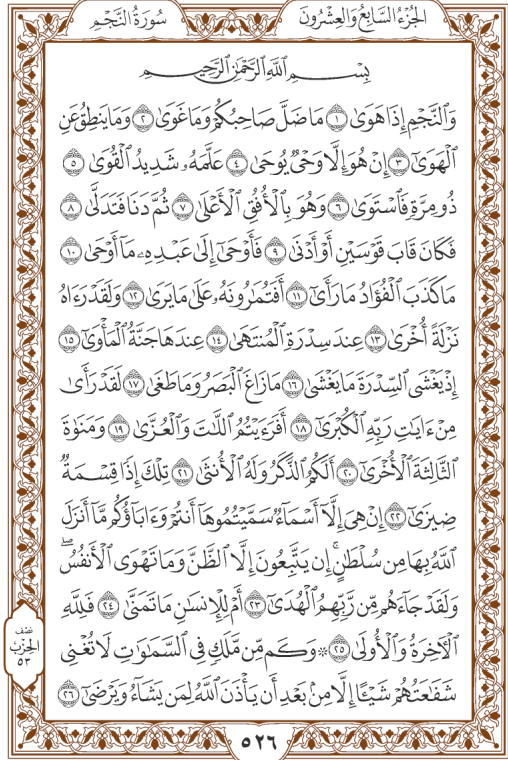 الجُزْءُ السَّابِعُ وَالعِشْرُونَ
سُورَةُ النَّجْمِ
بِسْمِ اللَّهِ الرَّحْمَٰنِ الرَّحِيمِ
وَالنَّجْمِ إِذَا هَوَىٰ ١ مَا ضَلَّ صَاحِبُكُمْ وَمَا غَوَىٰ ٢ وَمَا يَنطِقُ عَنِ
الْهَوَىٰٓ ٣ إِنْ هُوَ إِلَّا وَحْيٌ يُوحَىٰ ٤ عَلَّمَهُۥ شَدِيدُ الْقُوَىٰ ٥
ذُو مِرَّةٍ فَاسْتَوَىٰ ٦ وَهُوَ بِالْأُفُقِ الْأَعْلَىٰ ٧ ثُمَّ دَنَا فَتَدَلَّىٰ ٨
فَكَانَ قَابَ قَوْسَيْنِ أَوْ أَدْنَىٰ ٩ فَأَوْحَىٰٓ إِلَىٰ عَبْدِهِۦ مَآ أَوْحَىٰ ١٠
مَا كَذَبَ الْفُؤَادُ مَا رَأَىٰٓ ١١ أَفَتُمَٰرُونَهُۥ عَلَىٰ مَا يَرَىٰ ١٢ وَلَقَدْ رَءَاهُ
نَزْلَةً أُخْرَىٰ ١٣ عِندَ سِدْرَةِ الْمُنتَهَىٰ ١٤ عِندَهَا جَنَّةُ الْمَأْوَىٰٓ ١٥
إِذْ يَغْشَى السِّدْرَةَ مَا يَغْشَىٰ ١٦ مَا زَاغَ الْبَصَرُ وَمَا طَغَىٰ ١٧ لَقَدْ رَأَىٰ
مِنْ ءَايَٰتِ رَبِّهِ الْكُبْرَىٰٓ ١٨ أَفَرَءَيْتُمُ اللَّٰتَ وَالْعُزَّىٰ ١٩ وَمَنَوٰةَ
الثَّالِثَةَ الْأُخْرَىٰٓ ٢٠ أَلَكُمُ الذَّكَرُ وَلَهُ الْأُنثَىٰ ٢١ تِلْكَ إِذًا قِسْمَةٌ
ضِيزَىٰٓ ٢٢ إِنْ هِىَ إِلَّآ أَسْمَآءٌ سَمَّيْتُمُوهَآ أَنتُمْ وَءَابَآؤُكُم مَّآ أَنزَلَ
اللَّهُ بِهَا مِن سُلْطَٰنٍ ۚ إِن يَتَّبِعُونَ إِلَّا الظَّنَّ وَمَا تَهْوَى الْأَنفُسُ ۖ
وَلَقَدْ جَآءَهُم مِّن رَّبِّهِمُ الْهُدَىٰٓ ٢٣ أَمْ لِلْإِنسَٰنِ مَا تَمَنَّىٰ ٢٤ فَلِلَّهِ
الْءَاخِرَةُ وَالْأُولَىٰ ٢٥ ۞ وَكَم مِّن مَّلَكٍ فِي السَّمَٰوَٰتِ لَا تُغْنِي
شَفَٰعَتُهُمْ شَيْـًٔا إِلَّا مِنۢ بَعْدِ أَن يَأْذَنَ اللَّهُ لِمَن يَشَآءُ وَيَرْضَىٰٓ ٢٦
نصف
الحزب
٥٣
٥٢٦